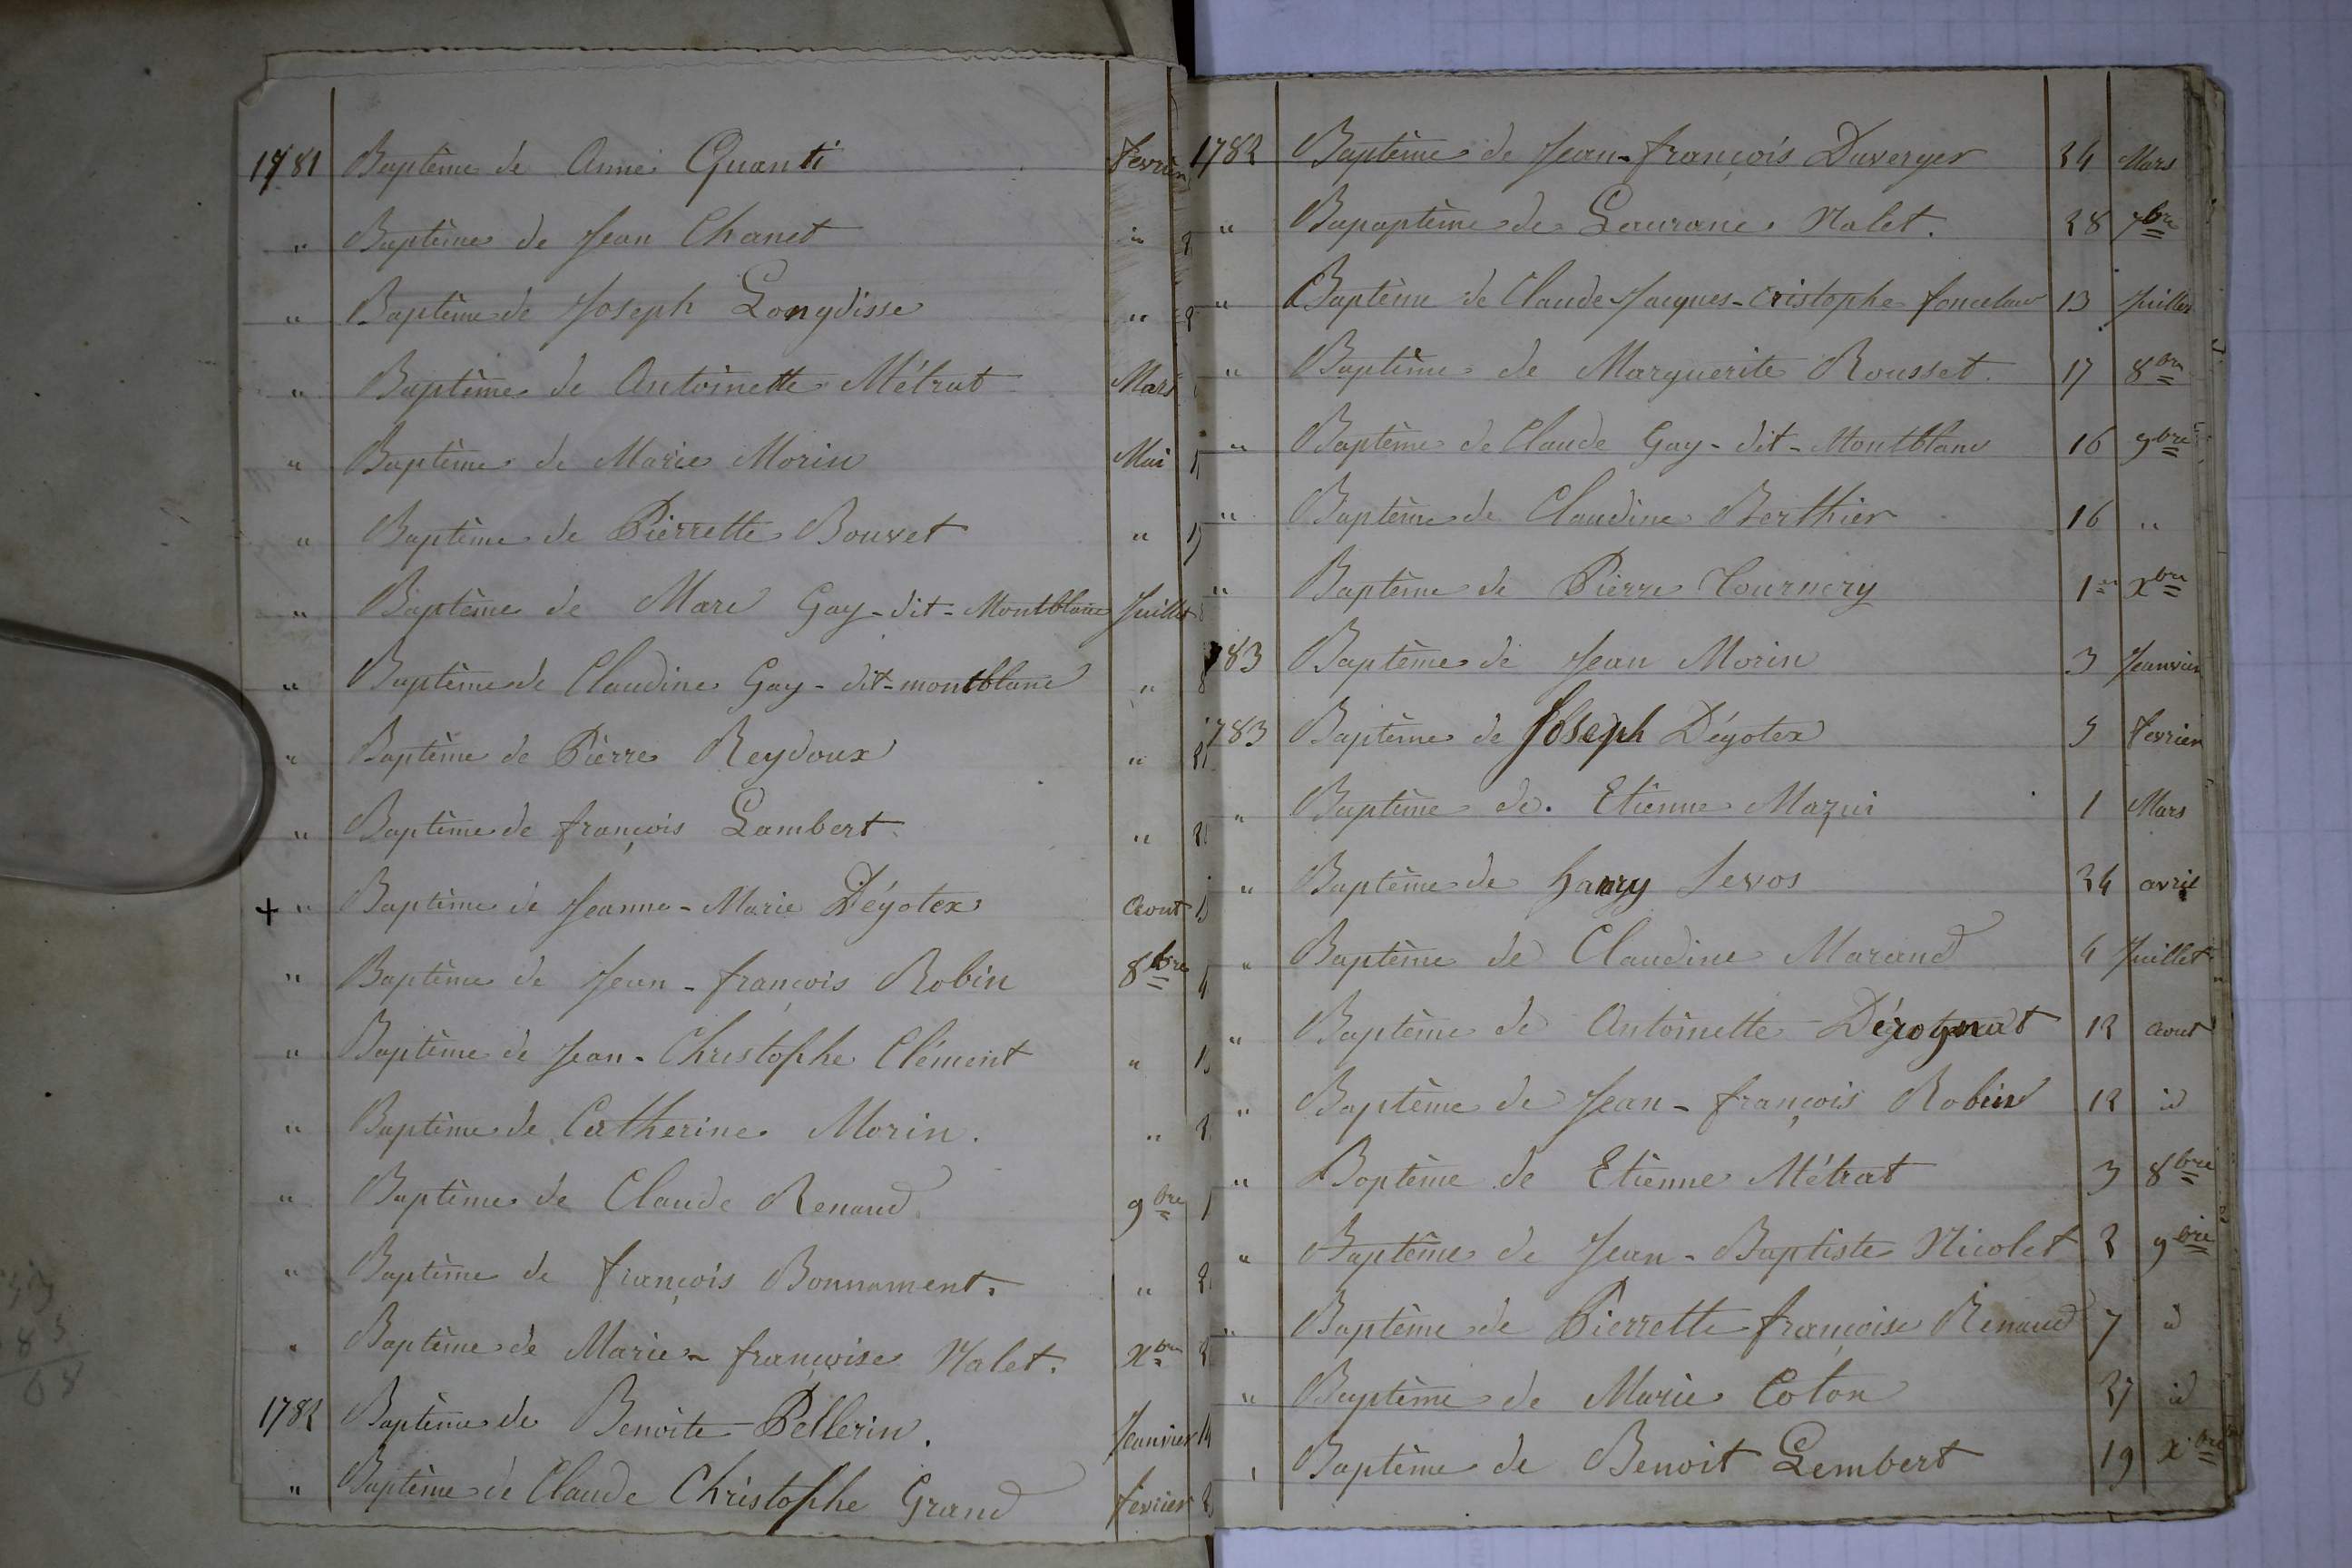 1781 Baptême de Anne Quanti fevrier
" Baptême de Jean Chanet id 2
" Baptême de Joseph Longdisse " 2
" Baptême de Antoinette Métrat Mars
" Baptême de Marie Morin Mai 1
" Baptême de Pierrette Bouvet " 1
" Baptême de Marc Gay-dit-Montblanc Juillet
" Baptême de Claudine Gay-dit-montblanc " 8
" Baptême de Pierre Reydoux " 2
" Baptême de françois Lambert. " 2
+ " Baptême de Jeanne-Marie Dégotex Aout 1
" Baptême de Jean-françois Robin 8bre
" Baptême de Jean-Christophe Clément " 1
" Baptême de Catherine Morin. " 2
" Baptême de Claude Renaud 9bre 1
" Baptême de françois Bonnament. " 2
" Baptême de Marie-françoise Nalet. Xbre 2
1782 Baptême de Benoite Pellerin. Jeanvier
" Baptême de Claude Christophe Grand fevrier 2
1782 Baptême de Jean-françois Duverger 24 Mars
" Bapaptême de Laurane Nalet. 28 7bre
" Baptême de Claude-Jacques-Cristophe 13 Juillet
" Baptême de Marguerite Rousset. 17 8bre
" Baptême de Claude Gay-dit-Montblanc 16 9bre
" Baptême de Claudine Berthier 16 "
" Baptême de Pierre Tournery 1er Xbre
783 Baptême de Jean Morin 3 Jeanvier
783 Baptême de Joseph Dégotex 5 fevrier
" Baptême de. Etienne Mazui 1 Mars
" Baptême de 24 avril
" Baptême de Claudine Marand 4 Juillet
" Baptême de Antoinette 12 Aout
" Baptême de Jean-françois Robin 12 id
" Baptême de Etienne Métrat 3 8bre
" Baptême de Jean-Baptiste Nicolet 2 9bre
" Baptême de Pierrette françoise Renaud 7 id
" Baptême de Marie Coton 27 id
" Baptême de Benoit Lembert 19 Xbre